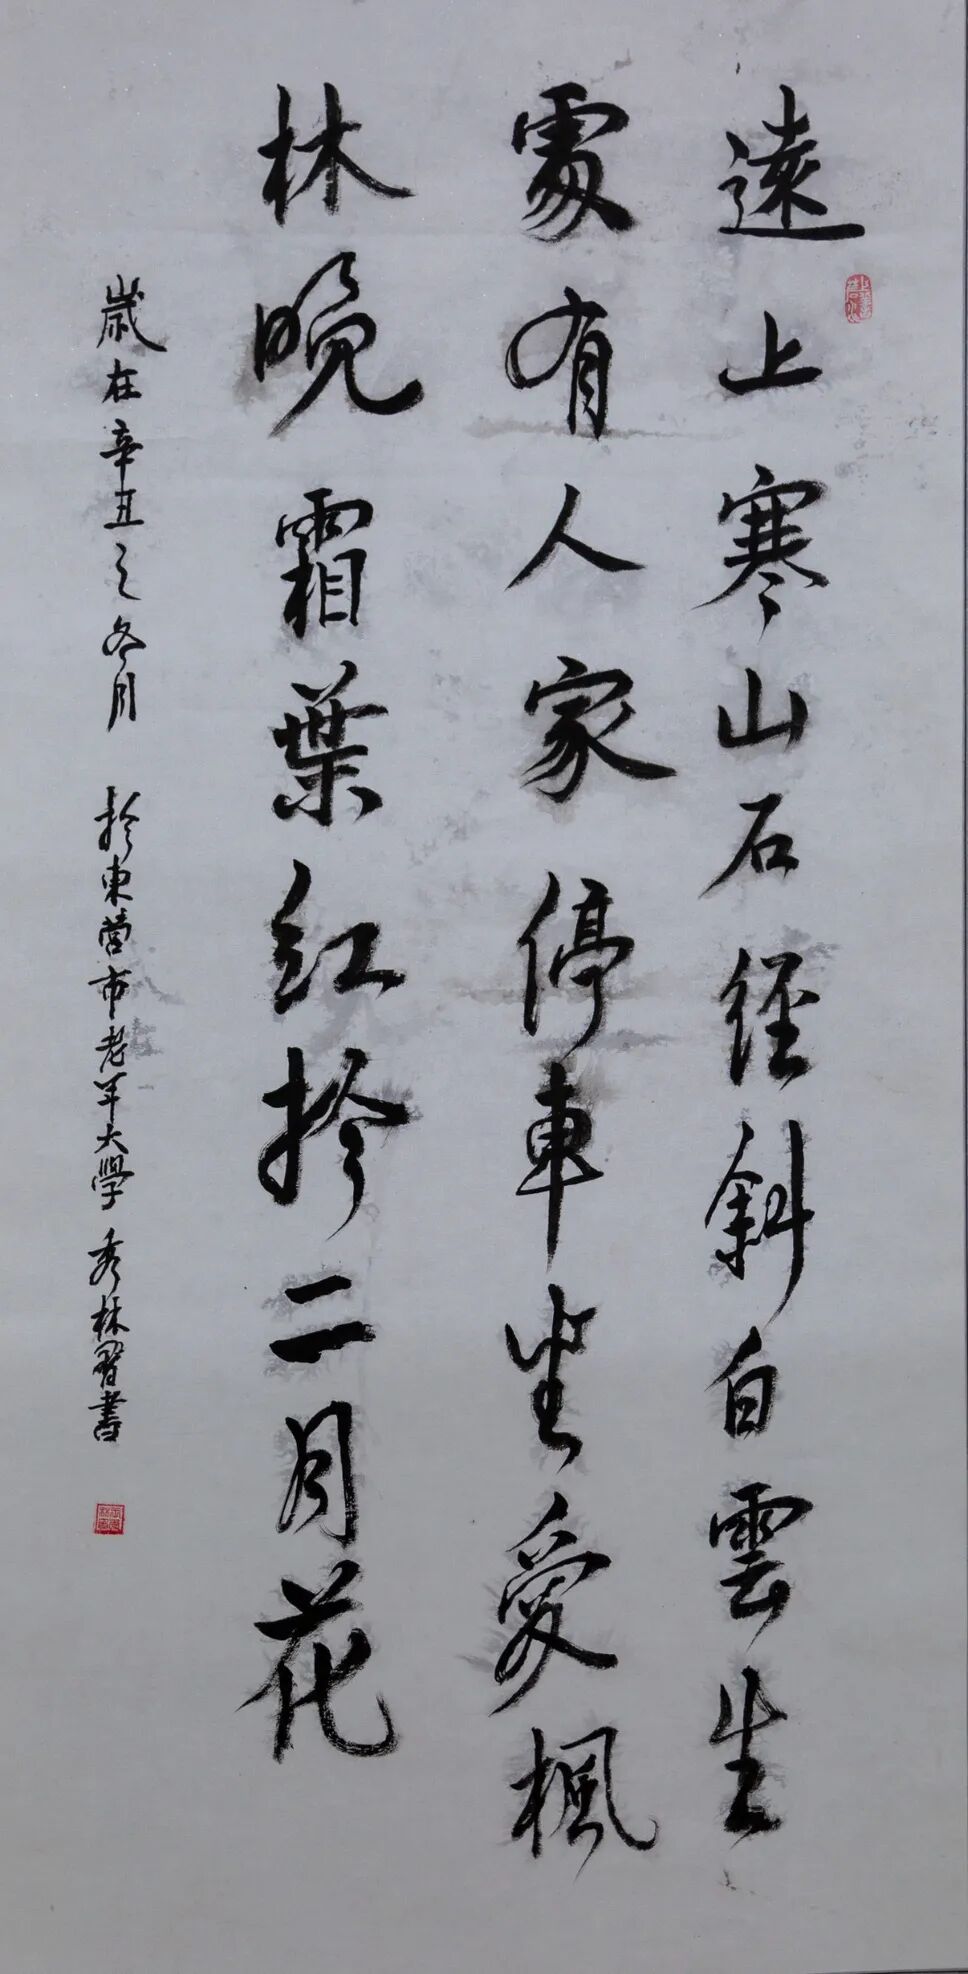 遠上寒山石徑斜白雲生
處有人家停車坐愛楓
林晚霜葉紅於二月花
歲在辛丑之冬月 於東營市老年大學秀林習書